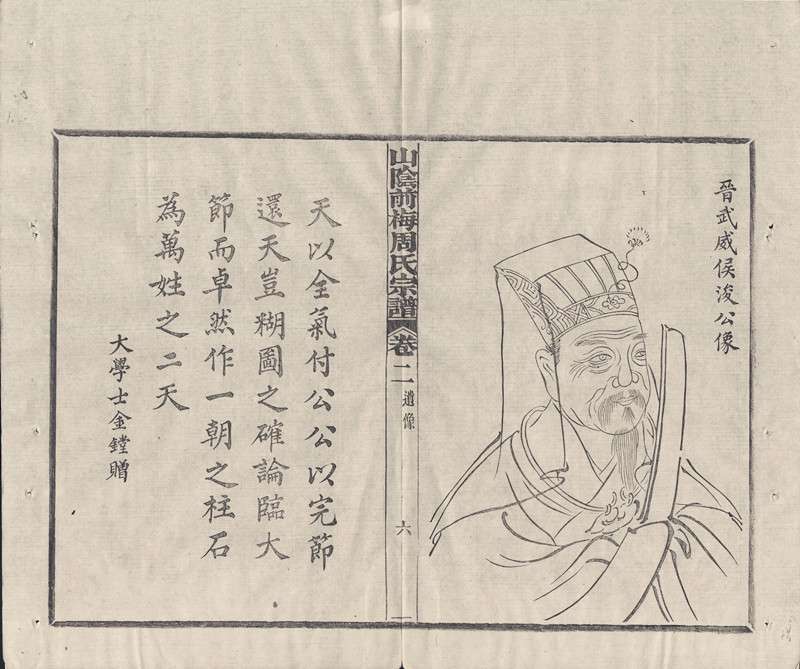 晉武威侯浚公像
山陰前梅周氏宗譜
卷二
遺像
六
天以全氣付公公以完節
還天豈糊圖之確論臨大
節而卓然作一朝之柱石
為萬姓之二天
大學士金鏜贈